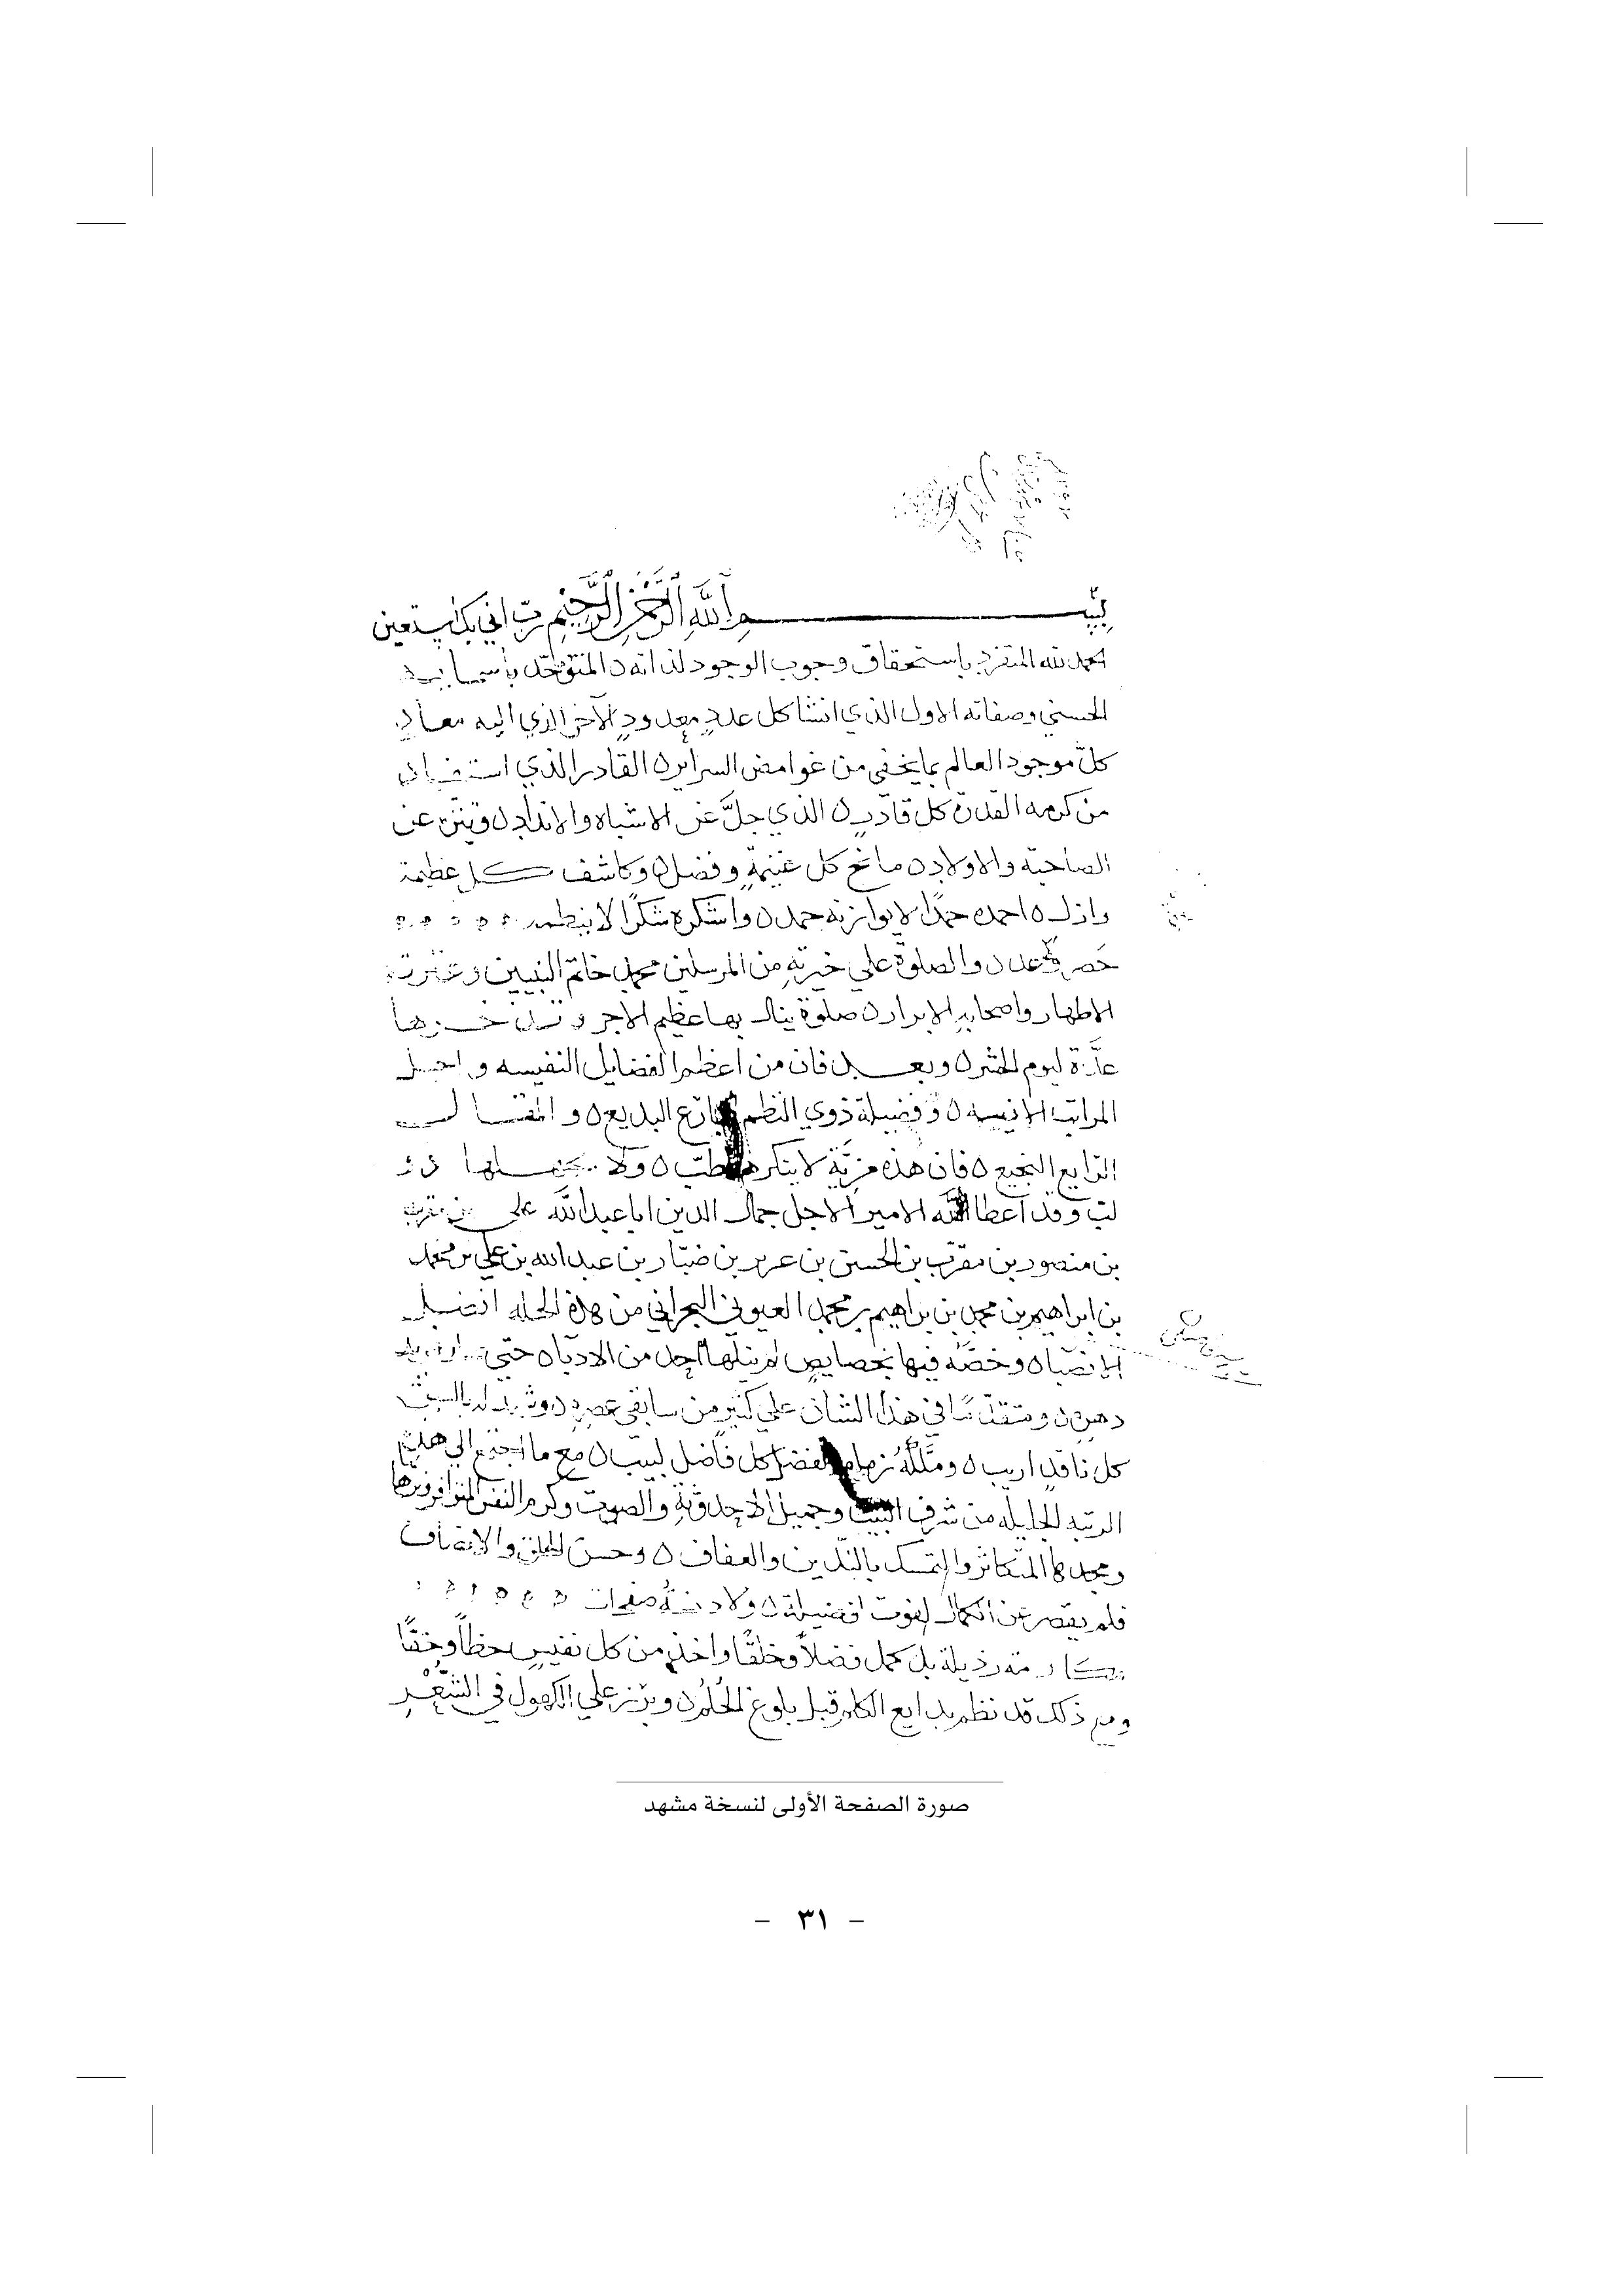 بسم الله الرحمن الرحيم رب اني بك استعين
الحمد لله المتفرد باستحقاق وجوب الوجود لذاته المتوحد باسمايه
الحسني وصفاته الاول الذي انشا كل عدد معدود الآخر الذي اليه معاد
كلّ موجود العالم بما يخفي من غوامض السراير القادر الذي استفاد
من كرمه القدرة كل قادر الذي جلَّ عن الاشباه والانداد وتنزه عن
الصاحبه والاولاد مانح كل غنيمةٍ وفضل وكاشف كل عظيمة
وازل احمده حمدًا لا يوازنه حمد واشكره شكرًا لا
حصر عد والصلوة علي خيرته من المرسلين محمد خاتم النبيين وعترته
الاطهار واصحابه الابرار صلوة ينال بها عظيم الاجر و
عدّة ليوم الحشر وبعد فان من اعظم الفضايل النفيسه و
المراتب الانيسه فضيلة ذوي النظم البارع البديع و
الرايع النجيع فان هذه مزيّة لا ينكرها ولا يجهلها ذو
لب وقد اعطا الله الامير الاجل جمال الدين ابا عبد الله علي بن مقرب
بن منصور بن مقرب بن الحسن بن عزيز بن ضبّار بن عبد الله بن علي بن محمد
بن ابراهيم بن محمد بن ابراهيم بن محمد العيوني البحراني من هذه الحله افضل
وخصّه فيها بخصايص لم ينلها احد من الادباء حتي
دهره ومتقدمًا في هذا الشان علي كثير من سابقي عصره وشهد له بالسبق
كل ناقد اريب وملّكه زمام الفضل كل فاضل لبيب مع ما اجتمع الي هذه
الرتبه الجليله من شرف البيت وجميل الاحدوثة والصيت وكرم النفس المتوافر
ومجدها المتكاثر والتمسك بالدين والعفاف وحسن الخلق والانصاف
فلم يقصر عن الكمال لفوت فضيلة ولا دنسه صفات
رذيلة بل كمل فضلاً وخلقًا واخذ من كل نفيس حظاً وحقًا
ومع ذلك قد نظم بدايع الكلم قبل بلوغ الحُلُم وبرّز علي الكهول في الشعر
صورة الصفحة الأولى لنسخة مشهد
- ٣١ -